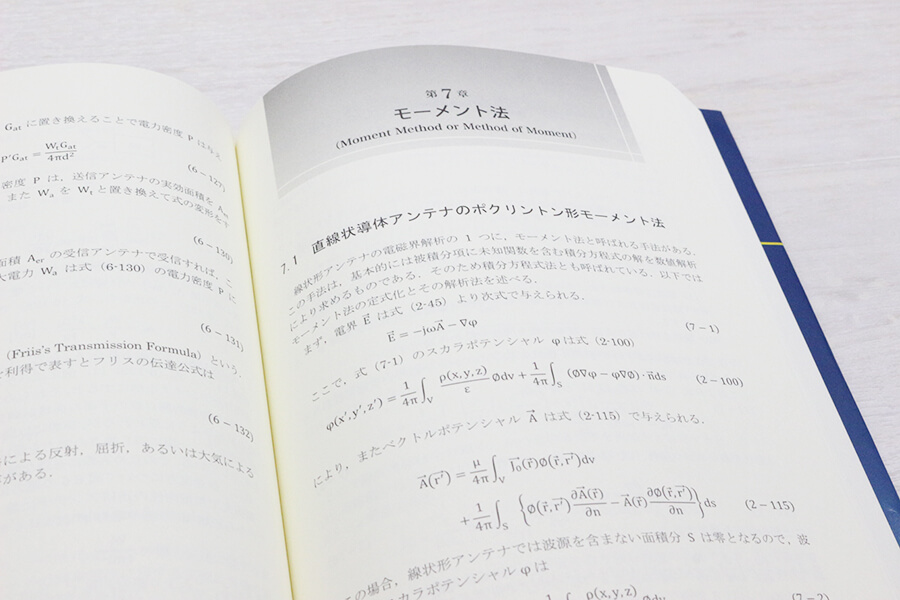 Gat に置き換えることで電力密度 P は与え
P'Gat = WtGat / 4πd²
(6－127)
密度 P は，送信アンテナの実効面積を Aer
また Wa を Wt と置き換えて式の変形をす
(6－130)
面積 Aer の受信アンテナで受信すれば，こ
大電力 Wa は式 (6･130) の電力密度 P に
(6－131)
(Friis's Transmission Formula) という．
利得で表すとフリスの伝達公式は
(6－132)
による反射，屈折，あるいは大気による
がある．
第7章
モーメント法
(Moment Method or Method of Moment)
7.1 直線状導体アンテナのポクリントン形モーメント法
線状形アンテナの電磁界解析の 1 つに，モーメント法と呼ばれる手法がある．
この手法は，基本的には被積分項に未知関数を含む積分方程式の解を数値解析
により求めるものである．そのため積分方程式法とも呼ばれている．以下では
モーメント法の定式化とその解析法を述べる．
まず，電界 E⃗ は式 (2･45) より次式で与えられる．
E⃗ = −jωA⃗ − ∇φ (7－1)
ここで，式 (7･1) のスカラポテンシャル φ は式 (2･100)
φ(x′,y′,z′) = 1/4π ∫V ρ(x,y,z)/ε Ødv + 1/4π ∫S (Ø∇φ − φ∇Ø)·n⃗ds (2－100)
により，またベクトルポテンシャル A⃗ は式 (2･115) で与えられる．
A⃗(r⃗′) = μ/4π ∫V J⃗₀(r⃗)Ø(r⃗,r⃗′)dv
+ 1/4π ∫S {Ø(r⃗,r⃗′) ∂A⃗(r⃗)/∂n − A⃗(r⃗) ∂Ø(r⃗,r⃗′)/∂n}ds (2－115)
この場合，線状形アンテナでは波源を含まない面積分 S は零となるので，波
スカラポテンシャル φ は
1 ∫ ρ(x,y,z) Ødv (7－2)